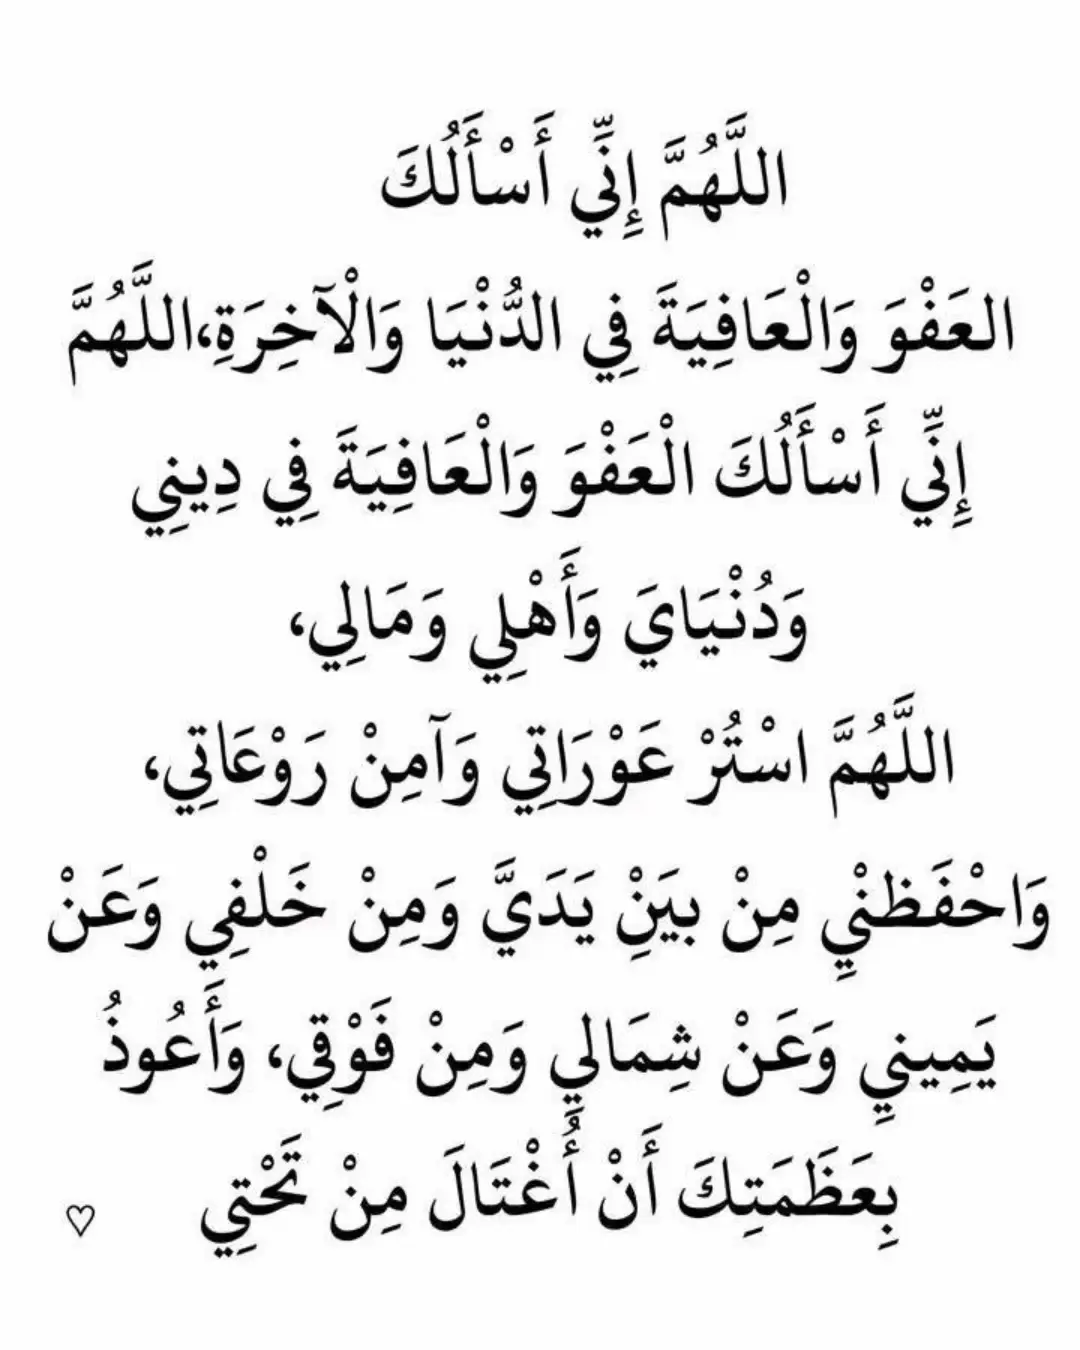 اللَّهُمَّ إِنِّي أَسْأَلُكَ
العَفْوَ وَالْعَافِيَةَ فِي الدُّنْيَا وَالْآخِرَةِ،اللَّهُمَّ
إِنِّي أَسْأَلُكَ الْعَفْوَ وَالْعَافِيَةَ فِي دِينِي
وَدُنْيَايَ وَأَهْلِي وَمَالِي،
اللَّهُمَّ اسْتُرْ عَوْرَاتِي وَآمِنْ رَوْعَاتِي،
وَاحْفَظْنِي مِنْ بَيْنِ يَدَيَّ وَمِنْ خَلْفِي وَعَنْ
يَمِينِي وَعَنْ شِمَالِي وَمِنْ فَوْقِي، وَأَعُوذُ
بِعَظَمَتِكَ أَنْ أُغْتَالَ مِنْ تَحْتِي ♡